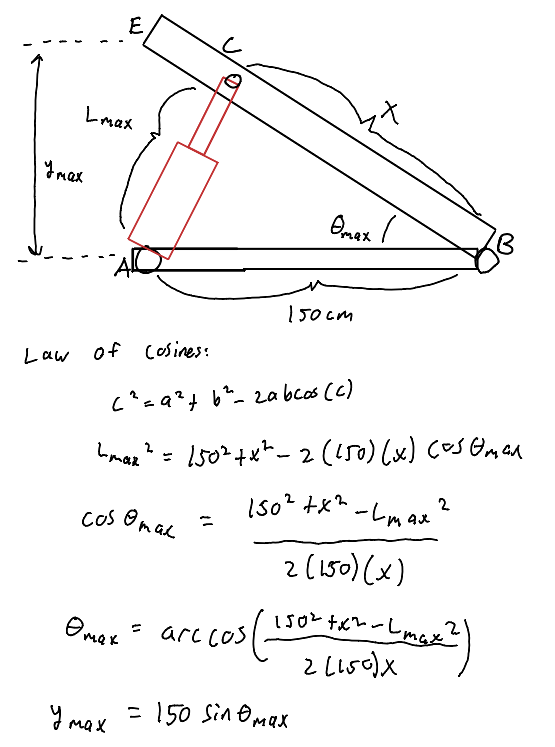 E
C
L max
X
y max
θ max
B
A
150 cm
Law of cosines:
c² = a² + b² - 2abcos(c)
L max² = 150² + x² - 2(150)(x) cos θ max
cos θ max = (150² + x² - L max²) / (2(150)(x))
θ max = arccos((150² + x² - L max²) / (2(150)x))
y max = 150 sin θ max